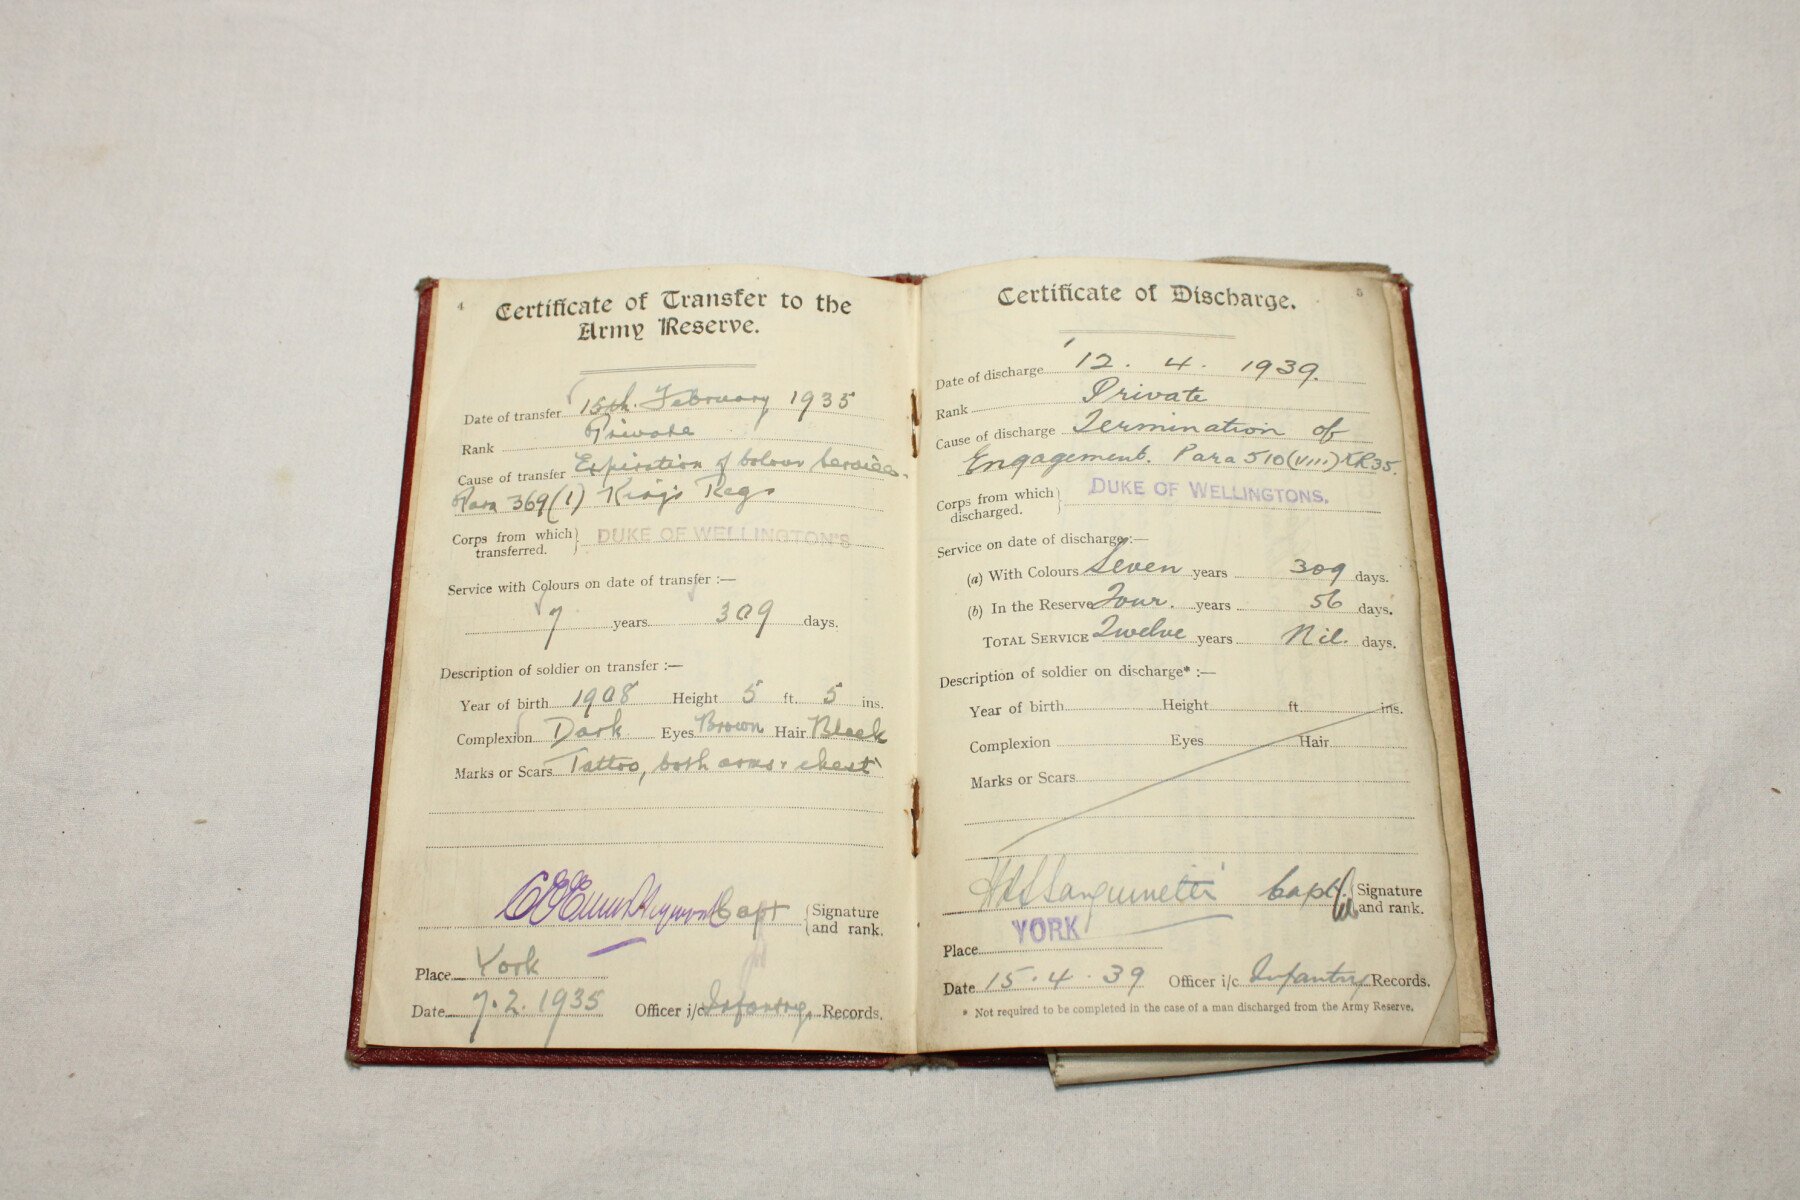 4
Certificate of Transfer to the
Army Reserve.
Date of transfer 15th. February 1935
Rank Private
Cause of transfer Expiration of Colour Service.
Para 369(1) King's Regs
Corps from which transferred. } DUKE OF WELLINGTON'S
Service with Colours on date of transfer :—
7 years 309 days.
Description of soldier on transfer :—
Year of birth 1908 Height 5 ft. 5 ins.
Complexion Dark Eyes Brown Hair Black
Marks or Scars Tattoo, both arms & chest
Capt { Signature and rank.
Place York
Date 7.2.1935 Officer i/c Infantry Records.
5
Certificate of Discharge.
Date of discharge 12. 4. 1939.
Rank Private
Cause of discharge Termination of
Engagement. Para 510(viii) KR35.
Corps from which discharged. } DUKE OF WELLINGTONS.
Service on date of discharge :—
(a) With Colours Seven years 309 days.
(b) In the Reserve Four. years 56 days.
TOTAL SERVICE Twelve years Nil. days.
Description of soldier on discharge* :—
Year of birth Height ft. ins.
Complexion Eyes Hair
Marks or Scars
Capt. { Signature and rank.
Place YORK
Date 15.4.39 Officer i/c Infantry Records.
* Not required to be completed in the case of a man discharged from the Army Reserve.